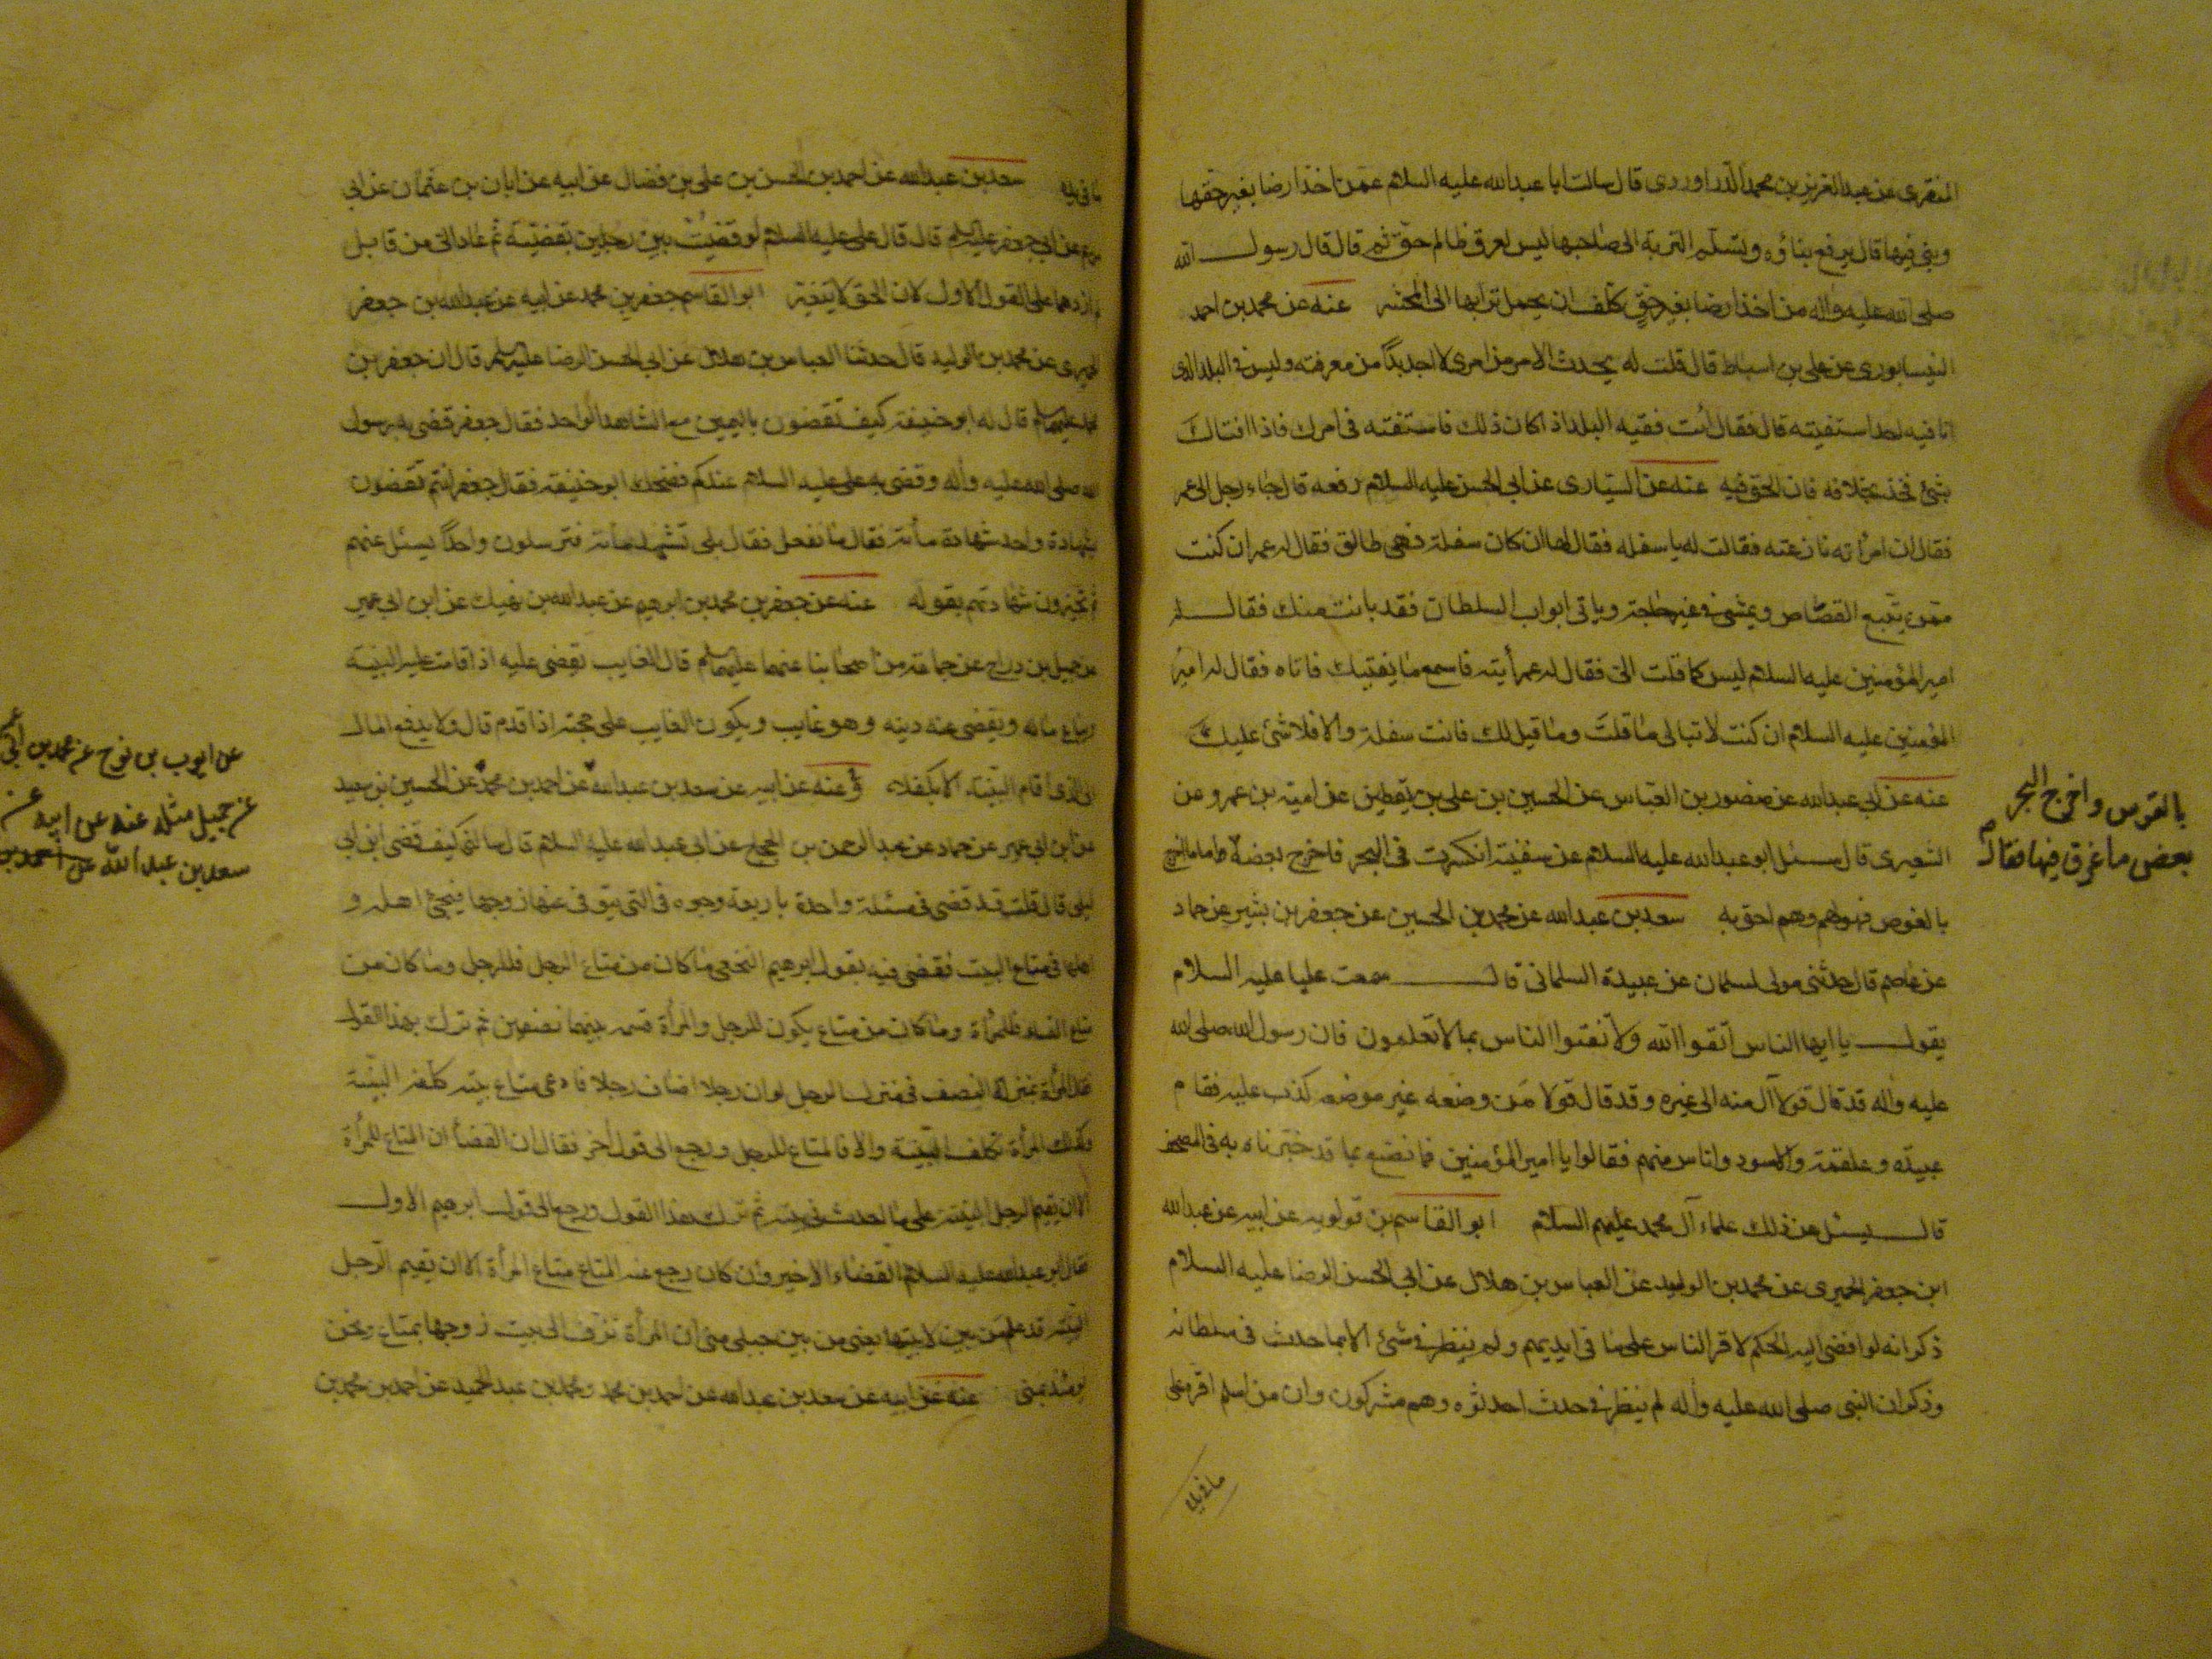 المنقرى عن عبد العزيز بن محمد الدراوردى قال سالت ابا عبدالله عليه السلام عمن اخذ ارضا بغير حقها
وبنى فيها قال يرفع بناؤه وتسلم التربة الى صاحبها ليس لعرق ظالم حق ثم قال قال رسول الله
صلى الله عليه واله من اخذ ارضا بغير حق كلف ان يحمل ترابها الى المحشر عنه عن محمد بن احمد
النيسابورى عن على بن اسباط قال قلت له يحدث الامر من امرى لا اجد بدا من معرفته وليس فى البلد الذى
انا فيه احد استفتيه قال فقال ائت فقيه البلد اذا كان ذلك فاستفته فى امرك فاذا افتاك
بشئ فخذ بخلافه فان الحق فيه عنه عن السيارى عن ابى الحسن عليه السلام رفعه قال جاء رجل الى عمر
فقال ان امرأته نازعته فقالت له يا سفله فقال لها ان كان سفلة فهى طالق فقال له عمر ان كنت
ممن يتبع القصاص ويمشى فى غير حاجة وياتى ابواب السلطان فقد بانت منك فقال له
امير المؤمنين عليه السلام ليس كما قلت الى فقال له عمر أيته فاسمع ما يفتيك فاتاه فقال له امير
المؤمنين عليه السلام ان كنت لا تبالى ما قلت وما قيل لك فانت سفلة والا فلا شئ عليك
عنه عن ابى عبدالله عن منصور بن العباس عن الحسين بن على بن يقطين عن امية بن عمرو عن
الشعيرى قال سئل ابو عبدالله عليه السلام عن سفينة انكسرت فى البحر فاخرج بعضه
بالغوص واخرج البحر
بعض ما غرق فيها فقال
بالغوص فهو لهم وهم احق به سعد بن عبدالله عن محمد بن الحسين عن جعفر بن بشير عن حماد
عن عاصم قال حدثنى مولى لسلمان عن عبيدة السلمانى قال سمعت عليا عليه السلام
يقول يا ايها الناس اتقوا الله ولا تفتوا الناس بما لا تعلمون فان رسول الله صلى الله
عليه واله قد قال قولا آل منه الى غيره وقد قال قولا من وضعه غير موضعه كذب عليه فقام
عبيدة وعلقمة والاسود واناس منهم فقالوا يا امير المؤمنين فما نصنع بما قد خبرناه به فى المصحف
قال يسئل عن ذلك علماء آل محمد عليهم السلام ابو القاسم بن قولويه عن ابيه عن عبدالله
ابن جعفر الحميرى عن محمد بن الوليد عن العباس بن هلال عن ابى الحسن الرضا عليه السلام
ذكر انه لو افضى اليه الحكم لاقر الناس على ما فى ايديهم ولم ينظر فى شئ الا بما حدث فى سلطانه
وذكر ان النبى صلى الله عليه واله لم ينظر فى حدث احدثوه وهم مشركون وان من اسلم اقره على
ما فى يده
ما فى يده سعد بن عبدالله عن احمد بن الحسن بن على بن فضال عن ابيه عن ابان بن عثمان عن ابى
مريم عن ابى جعفر عليه السلام قال قال على عليه السلام لو قضيت بين رجلين بقضية ثم عادا الى من قابل
لم ازدهما على القول الاول لان الحق لا يتغير ابو القاسم جعفر بن محمد عن ابيه عن عبدالله بن جعفر
الحميرى عن محمد بن الوليد قال حدثنا العباس بن هلال عن ابى الحسن الرضا عليه السلام قال ان جعفر بن
محمد عليهما السلام قال له ابو حنيفة كيف تقضون باليمين مع الشاهد الواحد فقال جعفر قضى به رسول
الله صلى الله عليه واله وقضى به على عليه السلام عندكم فضحك ابو حنيفة فقال جعفر انتم تقضون
بشهادة واحد شهادة مأئة فقال ما نفعل فقال بلى تشهد مأئة فترسلون واحدا يسئل عنهم
ثم تجيزون شهادتهم بقوله عنه عن جعفر بن محمد بن ابرهيم عن عبدالله بن نهيك عن ابن ابى عمير
عن جميل بن دراج عن جماعة من اصحابنا عنهما عليهما السلام قال الغايب يقضى عليه اذا قامت عليه البينة
ويباع ماله ويقضى عنه دينه وهو غايب ويكون الغايب على حجته اذا قدم قال ولا يدفع المال
عن ايوب بن نوح عن محمد بن ابى عمير
عن جميل مثله عنه عن ابيه عن
سعد بن عبدالله عن احمد بن
الى الذى اقام البينة الا بكفلاء وعنه عن ابيه عن سعد بن عبدالله عن احمد بن محمد عن الحسين بن سعيد
عن ابن ابى عمير عن حماد عن عبد الرحمن بن الحجاج عن ابى عبدالله عليه السلام قال سالنى كيف قضى ابن ابى
ليلى قال قلت قد قضى فى مسئلة واحدة باربعة وجوه فى التى يتوفى عنها زوجها فيجئ اهله و
اهلها فى متاع البيت فقضى فيه بقول ابرهيم النخعى ما كان من متاع الرجل فللرجل وما كان من
متاع النساء فللمرأة وما كان من متاع يكون للرجل والمرأة قسمه بينهما نصفين ثم ترك بهذا القول
فقال المرأة بمنزلة الضيف فى منزل الرجل لو ان رجلا اضاف رجلا فادعى متاع بيته كلفه البينة
وكذلك المرأة تكلف البينة والا فالمتاع للرجل ورجع الى قول آخر فقال ان القضاء ان المتاع للمرأة
الا ان يقيم الرجل البينة على ما احدث فى بيته ثم ترك هذا القول ورجع الى قول ابرهيم الاول
فقال ابو عبدالله عليه السلام القضاء الاخير وان كان رجع عنه المتاع متاع المرأة الا ان يقيم الرجل
البينة قد علم من بين لابتيها يعنى من بين جبلى منى ان المرأة تزف الى بيت زوجها بمتاع ونحن
يومئذ بمنى عنه عن ابيه عن سعد بن عبدالله عن احمد بن محمد ومحمد بن عبد الحميد عن احمد بن محمد بن